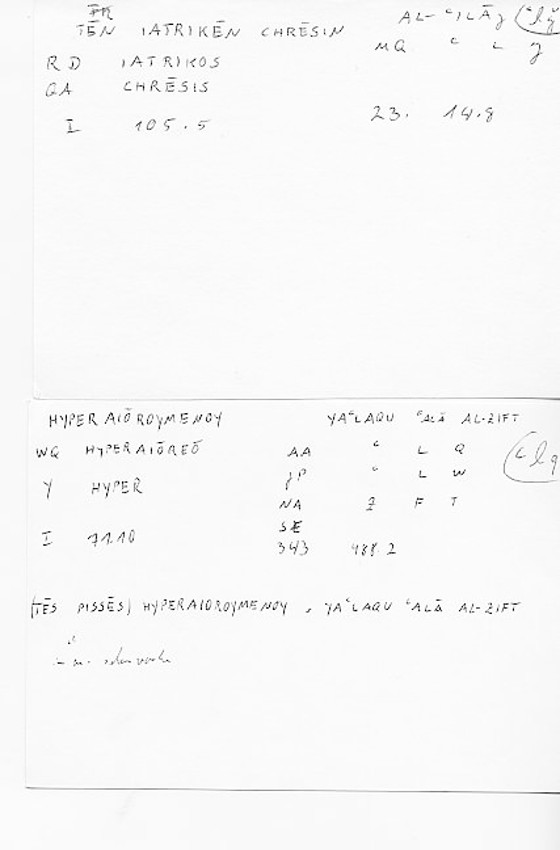 TĒN IATRIKĒN CHRĒSIN AL-ʿILĀǧ (ʿlǧ
RD IATRIKOS MQ ʿ L ǧ
QA CHRĒSIS
I 105.5 23. 14.8
HYPERAIŌROYMENOY YAʿLAQU ʿALĀ AL-ZIFT
WQ HYPERAIŌREŌ AA ʿ L Q (ʿlq
Y HYPER ʿ L W
NA Z F T
SE
I 71.10 343 488.2
(TĒS PISSĒS) HYPERAIOROYMENOY , YAʿLAQU ʿALĀ AL-ZIFT